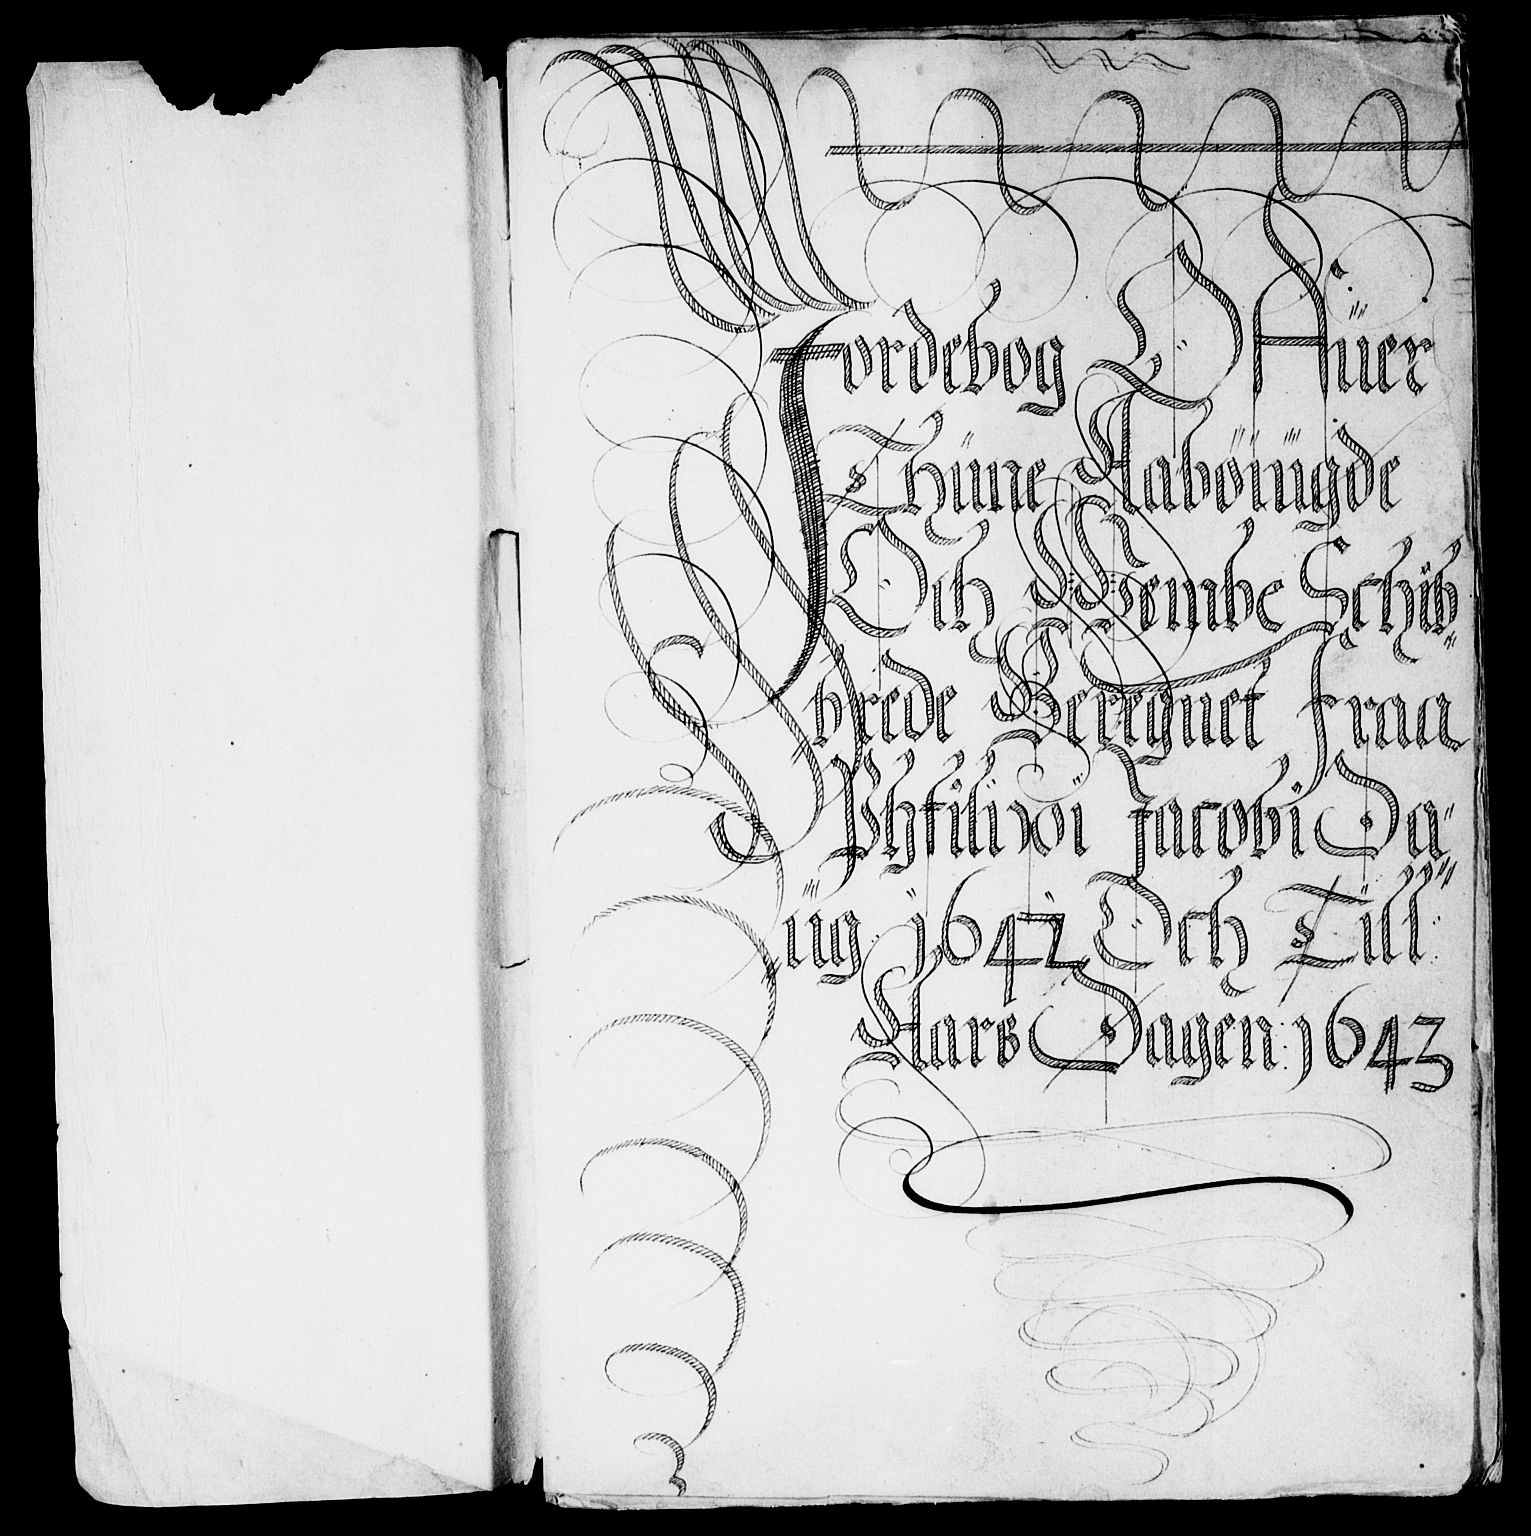 Jordebog Offüer
Thüne Aaböiügde
Och Wembe Schib
hrede Beregnet Fraa
Phfilippi Jacobi Da
üg 1642 Och Till
Aars Dagen: 1643